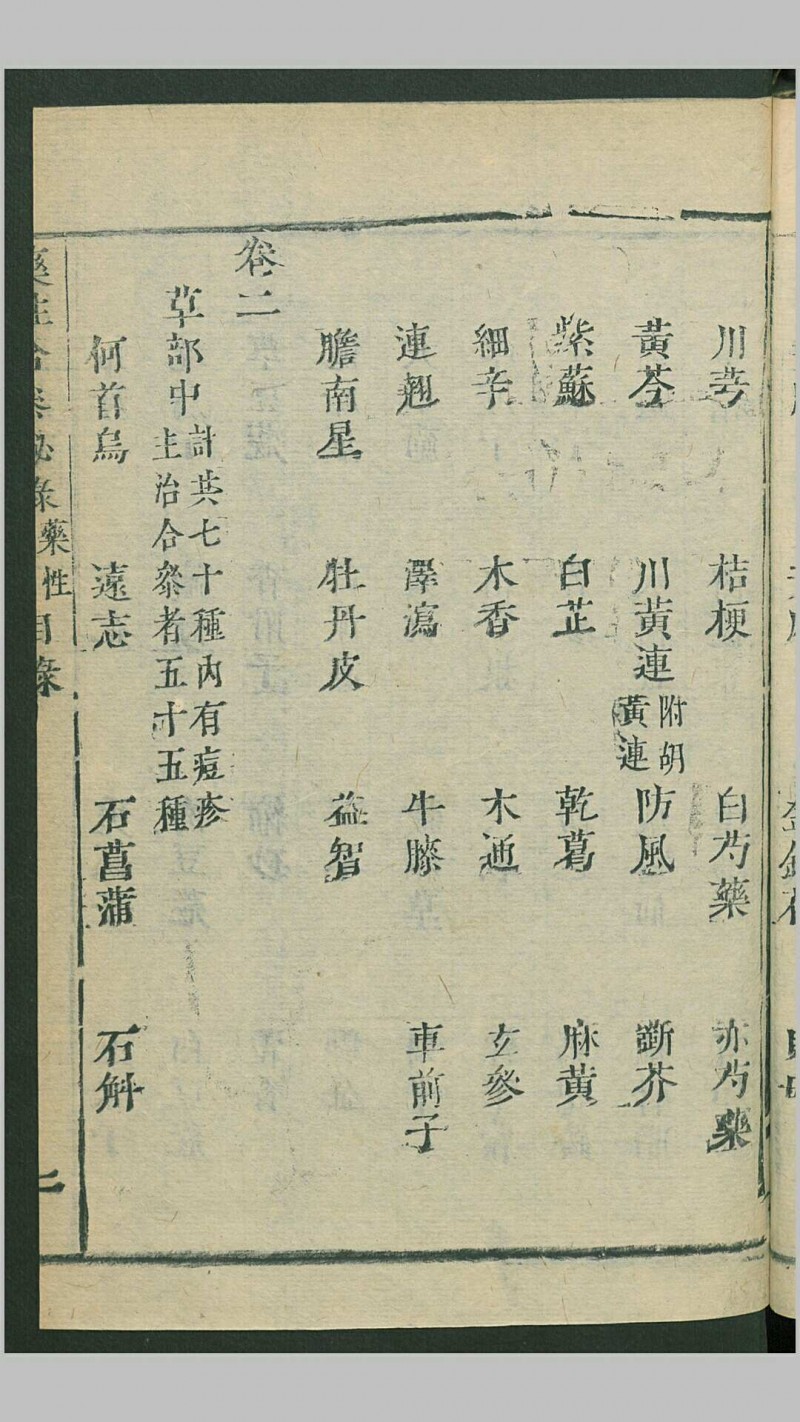 川芎 桔梗 白芍藥 赤芍藥
黃芩 川黃連 附胡黃連 防風 斷芥
紫蘇 白芷 乾葛 麻黃
細辛 木香 木通 玄參
連翹 澤瀉 牛膝 車前子
膽南星 牡丹皮 益智
卷二
草部中 計共七十種內有痘疹
主治合參者五十五種
何首烏 遠志 石菖蒲 石斛
藥性 目錄 二